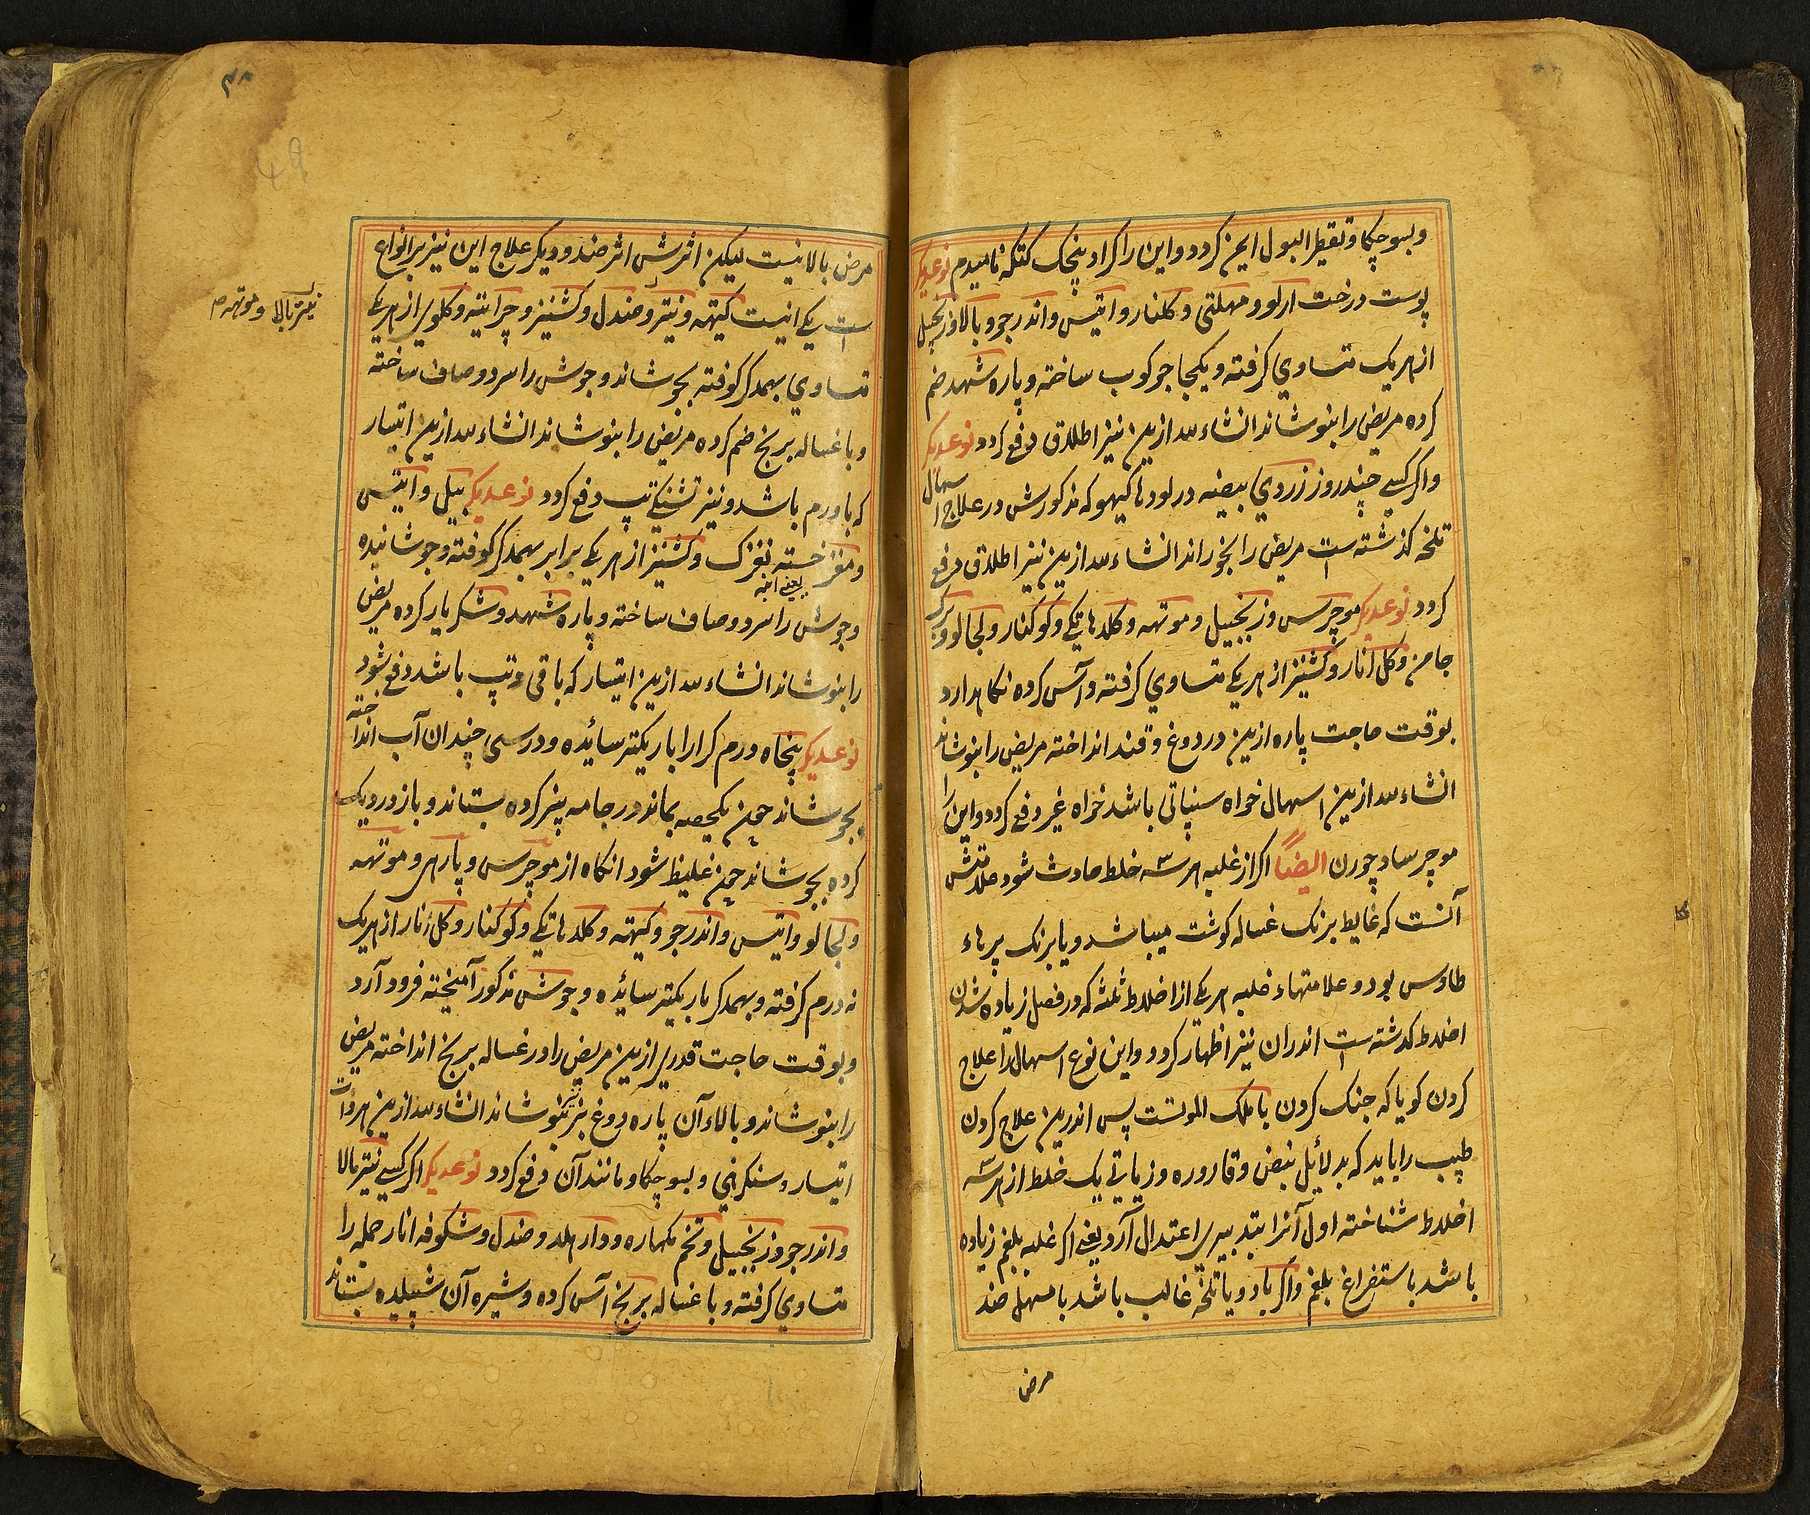 وبسوچکا وتقطیر البول ایمن کردد واین را کراد پنچک کتکه نامیدم نوعدیکر
پوست درخت ارلو ومهلتی وکلنار واتیس واندرجو وبالا وزنجبیل
از هریک متساوي کرفته ویکجا جوکوب ساخته وپاره شهد ضم
کرده مریض را بنوشاند انشاءالله ازین نیز اطلاق دفع کردد نوعدیکر
واکر کسي چند روز زردي بیضه در لودها کیهو که مذکورش در علاج اسهال
تلخه کذشته است مریض را بخوراند انشاءالله ازین نیز اطلاق دفع
کردد نوعدیکر موچرس وزنجبیل وموتهه وکلدهاتکي وکوکنار ولجالو وبرک
جامن وکل انار وکشنیز از هریکي متساوي کرفته وآس کرده نکاهدارد
بوقت حاجت پاره ازین در دوغ وقند انداخته مریض را بنوشاند
انشاءالله ازین اسهال خواه سنپاتی باشد خواه غیر دفع کردد واین را
موچرساد چورن ایضاً اکر از غلبه هر سه خلط حادث شود علامتش
آنست که غایط برنک غساله کوشت میباشد ویا برنک پرهاء
طاوس بود وعلامتهاء غلبه هریکي از اخلاط ثلثه که در فصل زیاده شدن
اخلاط کدشته است اندران نیز اظهار کردد واین نوع اسهال را علاج
کردن کویا که جنک کردن با ملک الموتست پس اندرین علاج کردن
طبیب را باید که بدلایل نبض وقاروره وزیاتي یک خلط از هر سه
اخلاط شناخته اول آنرا بتدبیري اعتدال آرد یعني اکر غلبه بلغم زیاده
باشد باستفراغ بلغم واکر باد ویا تلخه غالب باشد بامسهل ضد
مرض
۴۸
49
مرض بالا نیست لیکن اثرش اثر ضند ودیکر علاج این نیز بر انواع
است یکي اینست کیتهه ونیتر وصندل وکشنیز وچرایته وکلوي از هریکي
نیتربالا وموتهه
متساوي بهمدکر کوفته بجوشاند وجوش را سرد وصاف ساخته
وبا غساله برنج ضم کرده مریض را بنوشاند انشاءالله ازین اتیسار
که باورم باشد ونیز تشنکي تپ دفع کردد نوعدیکر بیل واتیس
ومغز خسته نغزک وکشنیز از هریکي برابر بهمدکر کوفته وجوشانیده
یعني انبه
وجوش را سرد وصاف ساخته وپاره شهد وشکر یار کرده مریض
را بنوشاند انشاءالله ازین اتیسار که باقی وتپ باشد دفع بشود
نوعدیکر پنجاه درم کرا را باریکتر سائیده ودر سی چندان آب انداخته
بجوشاند چون یکحصه بماند در جامه پنیر کرده بستاند وباز در دیک
کرده بجوشاند چون غلیظ شود انکاه از موچرس وپارهي وموتهه
ولجالو واتیس واندرجو وکیتهه وکلدهاتکي وکوکنار وکل انار از هریک
نه درم کرفته وبهمدکر باریکتر سائیده وجوش مذکور آمیخته فرود آرد
وبوقت حاجت قدري ازین مریض را در غساله برنج انداخته مریض
را بنوشاند وبالاء آن پاره دوغ بز بنوشاند انشاءالله ازین هر ذات
اتیسار وسنکرهني وبسوچکا ومانند آن دفع کردد نوعدیکر اکر کسي نیتربالا
واندرجو وزنجبیل وتخم کهاره ودارهلد وصندل وشکوفه انار جمله را
متساوي کرفته وبا غساله برنج آس کرده وشیره آن شپیلیده بستاند